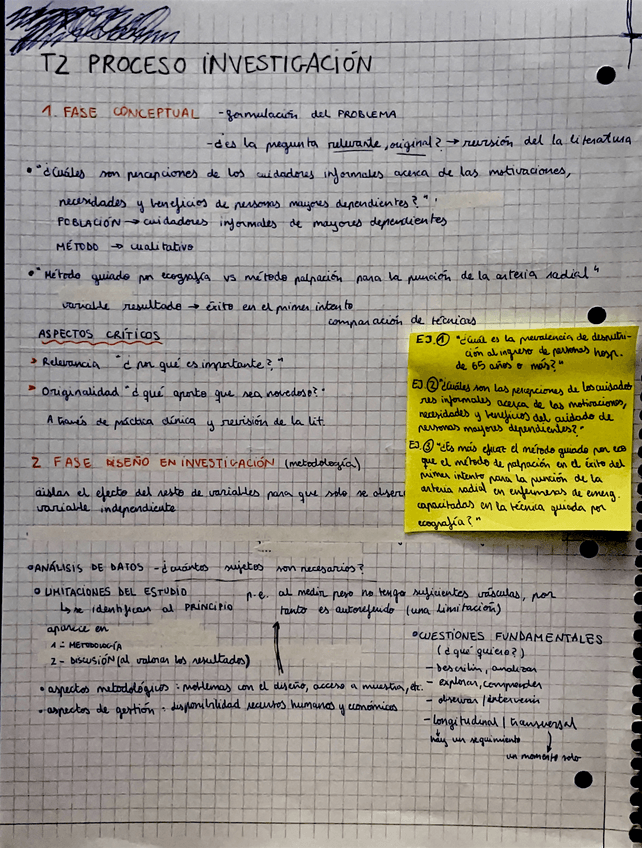 T2 PROCESO INVESTIGACIÓN
1. FASE CONCEPTUAL - formulación del PROBLEMA
- ¿es la pregunta relevante, original? → revisión del la literatura
• "¿Cuáles son percepciones de los cuidadores informales acerca de las motivaciones,
necesidades y beneficios de personas mayores dependientes?"
POBLACIÓN → cuidadores informales de mayores dependientes
MÉTODO → cualitativo
• "Método guiado por ecografía vs método palpación para la punción de la arteria radial"
variable resultado → éxito en el primer intento
comparación de técnicas
ASPECTOS CRÍTICOS
> Relevancia "¿por qué es importante?"
> Originalidad "¿qué aporto que sea novedoso?"
A través de práctica clínica y revisión de la lit.
EJ. ① "¿Cuál es la prevalencia de desnutri-
ción al ingreso de personas hosp.
de 65 años o más?"
EJ ② "¿Cuáles son las percepciones de los cuidado
res informales acerca de las motivaciones,
necesidades y beneficios del cuidado de
personas mayores dependientes?"
EJ. ③ "¿Es más eficaz el método guiado por eco
que el método de palpación en el éxito del
primer intento para la punción de la
arteria radial en enfermeras de emerg.
capacitadas en la técnica guiada por
ecografía?"
2 FASE DISEÑO EN INVESTIGACIÓN (metodología)
aislar el efecto del resto de variables para que solo se obser
variable independiente
• ANÁLISIS DE DATOS - ¿cuántos sujetos son necesarios?
• LIMITACIONES DEL ESTUDIO
↳ se identifican al PRINCIPIO
p.e. al medir peso no tengo suficientes básculas, por
tanto es autoreferido (una limitación)
aparece en
1 - METODOLOGÍA
2 - DISCUSIÓN (al valorar los resultados)
• aspectos metodológicos: problemas con el diseño, acceso a muestra, etc.
• aspectos de gestión: disponibilidad recursos humanos y económicos
• CUESTIONES FUNDAMENTALES
(¿qué quiero?)
- describir, analizar
- explorar, comprender
- observar / intervenir
- longitudinal / transversal
hay un seguimiento
un momento solo